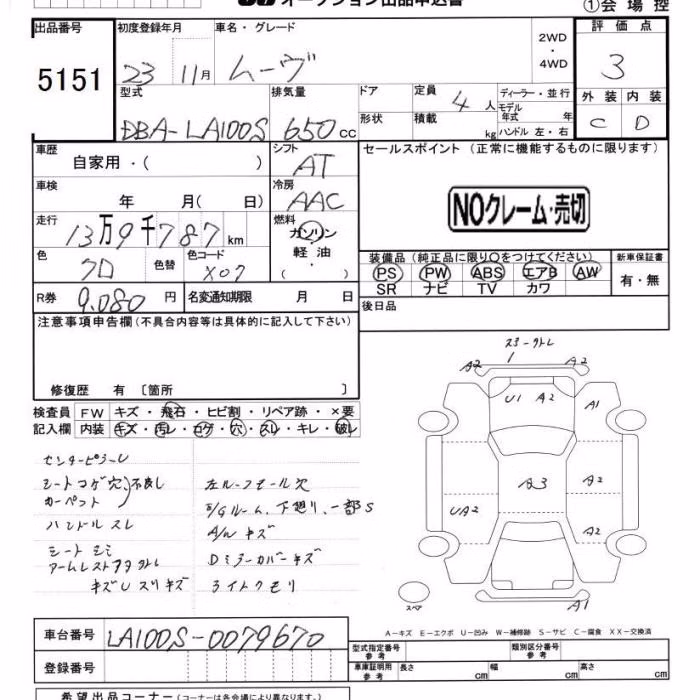 オークション出品申込書
①会場控
出品番号
5151
初度登録年月
23 11月
車名・グレード
ムーヴ
2WD
・
4WD
評価点
3
型式
DBA-LA100S
排気量
650cc
ドア
形状
定員
4人
積載
kg
ディーラー・並行
モデル年式 年
ハンドル 左・右
外装 内装
C D
車歴
自家用・( )
シフト
AT
セールスポイント (正常に機能するものに限ります)
NOクレーム・売切
車検
年 月(日)
冷房
AAC
走行
13万9千787km
燃料
ガソリン
軽油
( ・ )
色
クロ
色替
色コード
X07
装備品 (純正品に限り○をつけてください)
PS PW ABS エアB AW
SR ナビ TV カワ
新車保証書
有・無
R券
9.080円
名変通知期限 月 日
後日品
注意事項申告欄 (不具合内容等は具体的に記入して下さい)
修復歴 有 〔箇所 〕
検査員
記入欄
FW キズ・飛石・ヒビ割・リペア跡・×要
内装 キズ・汚レ・コゲ・穴・スレ・キレ・破レ
センターピラーU
シートコゲ穴
カーペット
不良し
ハンドルスレ
シートシミ
キズUスリキズ
左ルーフモール欠
E/Gルーム、下廻り、一部S
A/Wキズ
Dミラーカバーキズ
ライトクモリ
A2
1
A2
U1 A2
A1
A3
A2
UA2
A2
A1
スペア
A-キズ E-エクボ U-凹み W-補修跡 S-サビ C-腐食 XX-交換済
車台番号
LA100S-0079670
登録番号
型式指定番号
参考
類別区分番号
参考
車庫証明用
参考
長さ cm
幅 cm
高さ cm
希望出品コーナー (コーナーは各会場により異なります。)